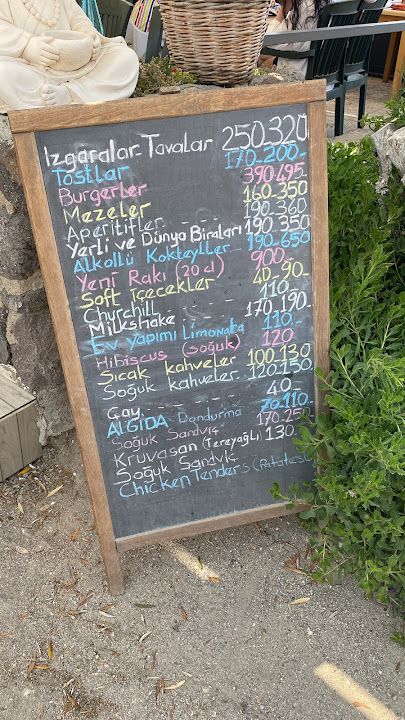 Izgaralar-Tavalar 250.320
Tostlar 170-200-
Burgerler 390-495-
Mezeler 160.350
Aperitifler - - - 190-360
Yerli ve Dünya Biraları 190.350
Alkollü Kokteyller - 190-650
Yeni Rakı (20 cl) 900-
Soft içecekler 40-90-
Churchill - - - 110-
Milkshake - - - 170.190-
Ev yapımı Limonata 110-
Hibiscus (soğuk) 120
Sıcak kahveler 100.130
Soğuk kahveler 120.150
Çay - - - - 40-
ALGİDA Dondurma 70.110-
Soğuk Sandviç 170-250
Kruvasan (Tereyağlı) 130
Soğuk Sandviç
Chicken Tenders